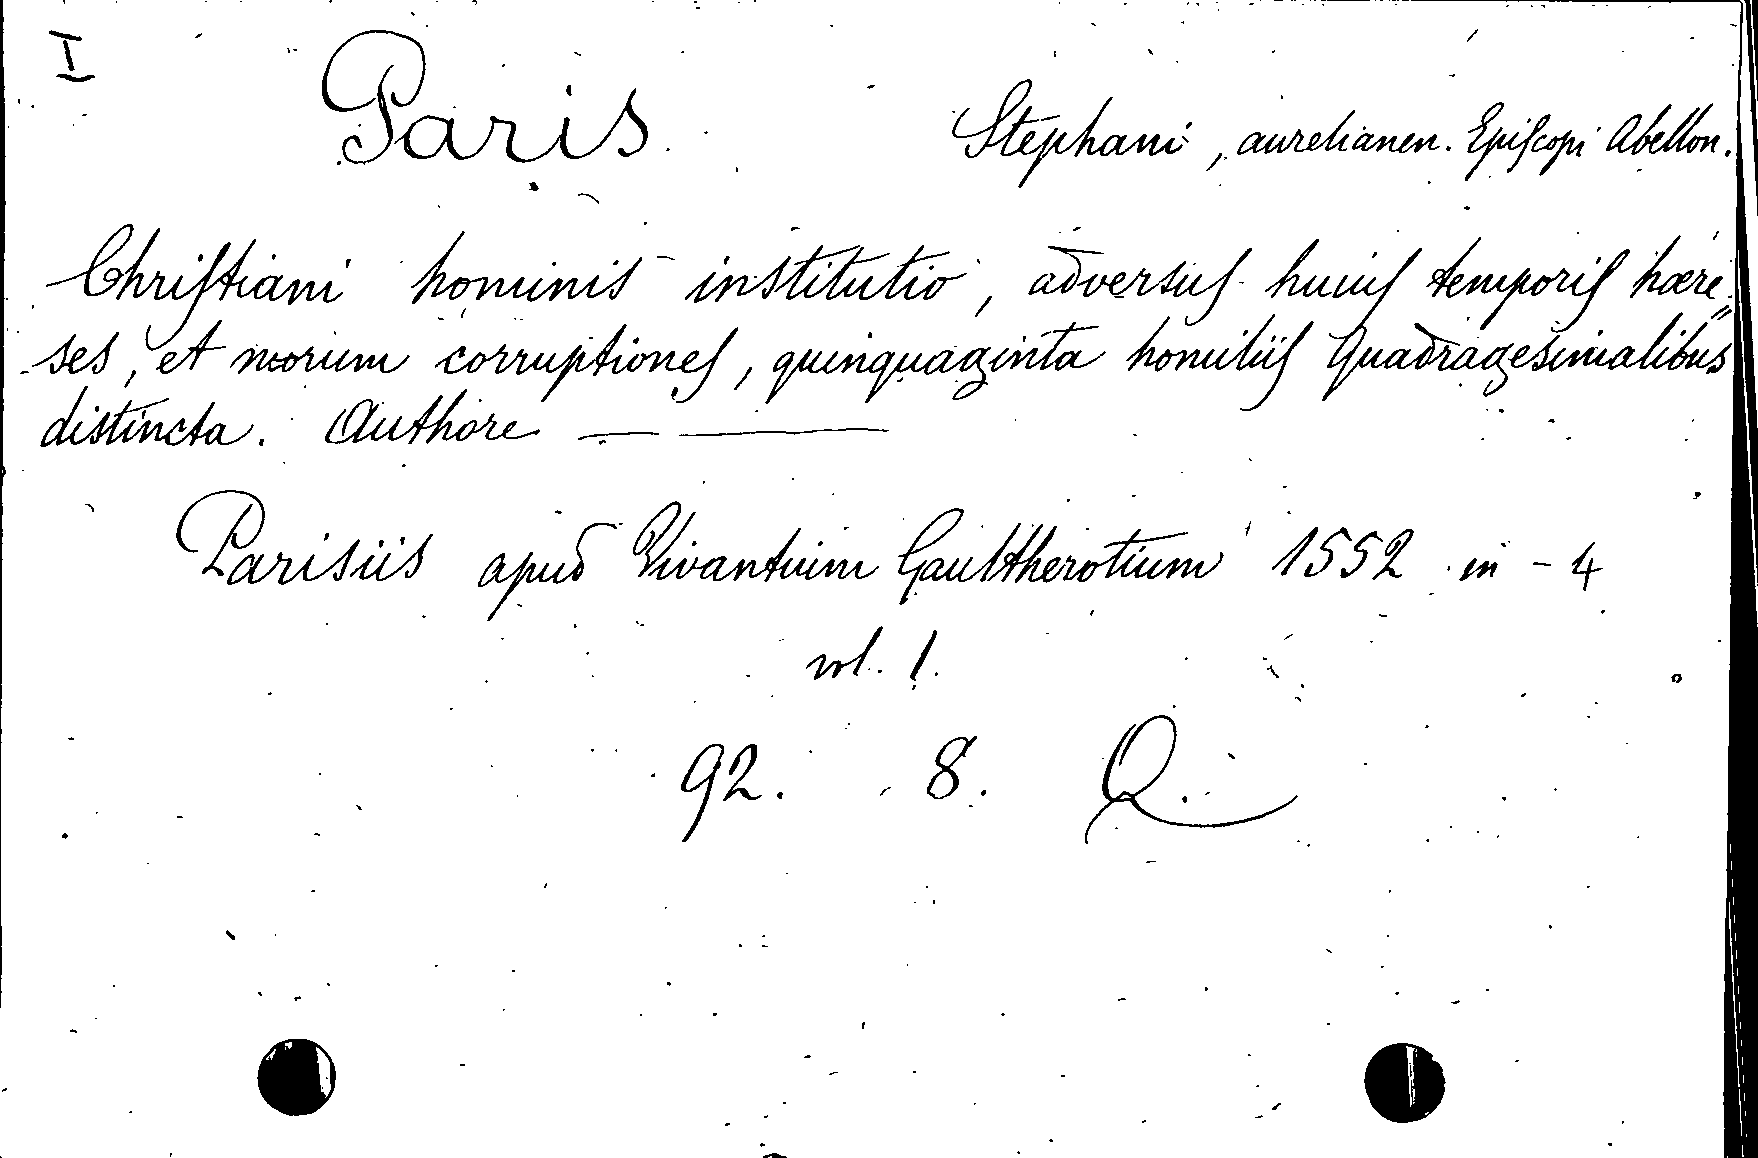 I
Paris Stephani, aurelianen. Epiſcopi Abellon.
Chriſtiani hominis institutio, adversuſ huiuſ temporiſ hære„
ses, et morum corruptioneſ, quinquaginta homiliiſ Quadragesimalibus
distincta. Authore ———
Parisiis apud Vivantium Gaultherotium 1552 in - 4
vol. 1.
92. 8. Q.